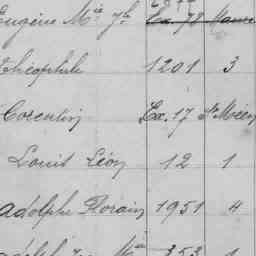 Eugène Mie Jh Ex. 78
Théophile 1201 3
Corentin Ex. 17 St Méen
Louis Léon 12 1
Adolphe Florain 1951 4
353 1